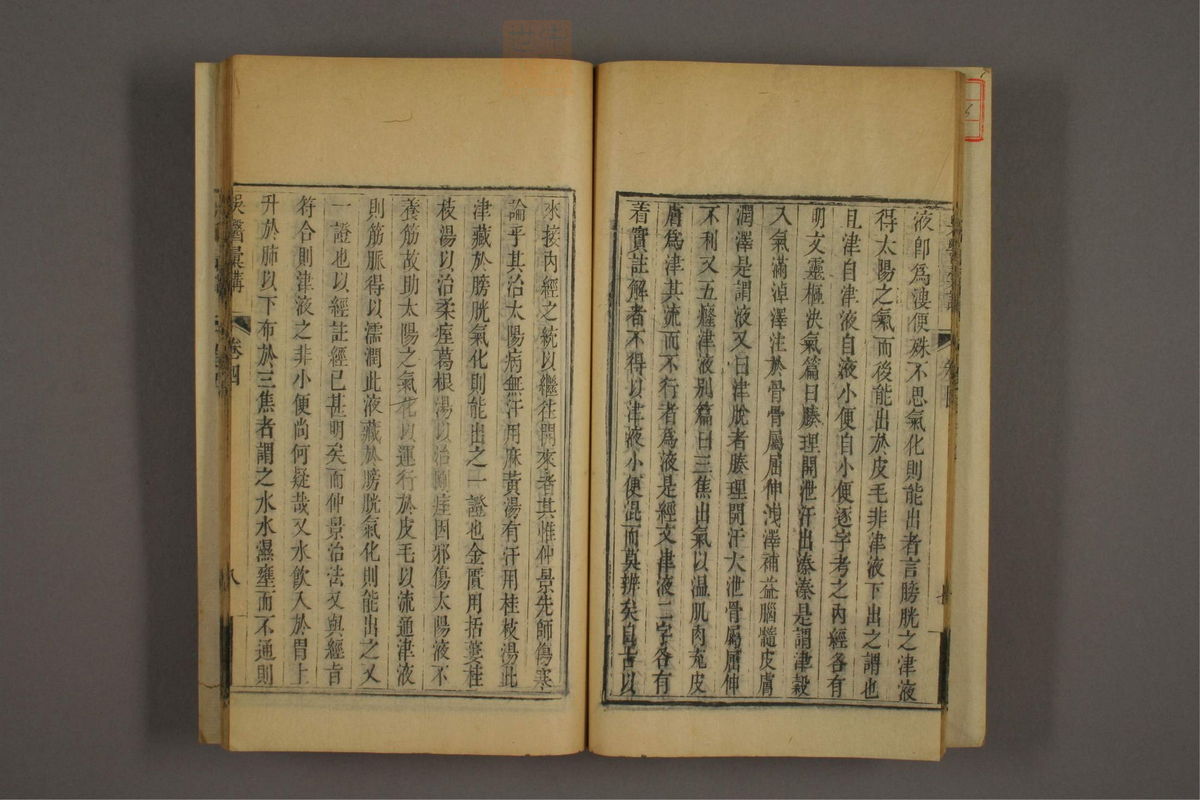 液卽為溲便殊不思氣化則能出者言膀胱之津液
得太陽之氣而後能出於皮毛非津液下出之謂也
且津自津液自液小便自小便逐字考之內經各有
明文靈樞決氣篇曰腠理開泄汗出溱溱是謂津穀
入氣滿淖澤注於骨骨屬屈伸洩澤補益腦髓皮膚
潤澤是謂液又曰津脫者腠理開汗大泄骨屬屈伸
不利又五癃津液別篇曰三焦出氣以温肌肉充皮
膚為津其流而不行者為液是經文津液二字各有
着實註解者不得以津液小便混而莫辨矣自古以
來接內經之統以繼往開來者其惟仲景先師傷寒
論乎其治太陽病無汗用麻黃湯有汗用桂枝湯此
津藏於膀胱氣化則能出之一證也金匱用括蔞桂
枝湯以治柔痓葛根湯以治剛痓因邪傷太陽液不
養筋故助太陽之氣化以運行於皮毛以流通津液
則筋脈得以濡潤此液藏於膀胱氣化則能出之又
一證也以經註經已甚明矣而仲景治法又與經旨
符合則津液之非小便尚何疑哉又水飲入於胃上
升於肺以下布於三焦者謂之水水濕壅而不通則
吳醫彙講
卷四
八